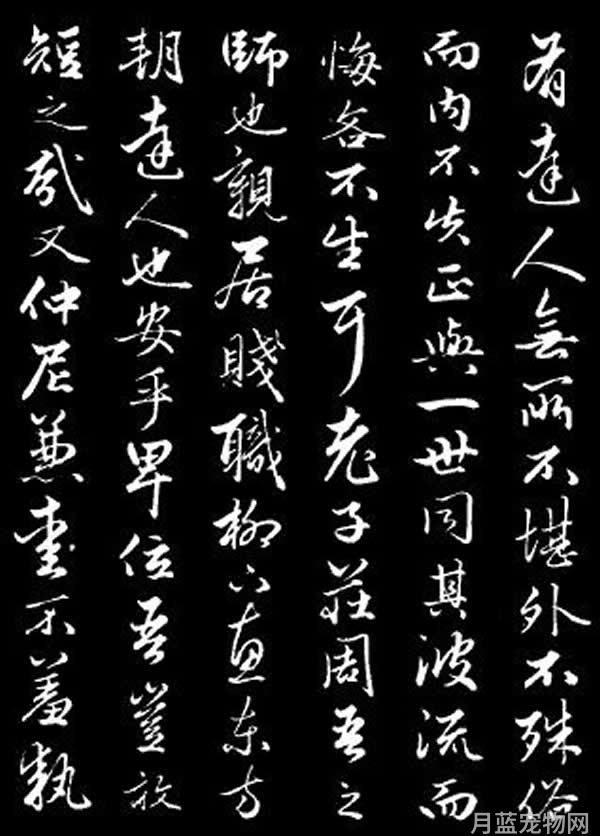 有達人無所不堪外不殊俗
而內不失正與一世同其波流而
悔吝不生耳老子莊周吾之
師也親居賤職柳下惠東方
朔達人也安乎卑位吾豈敢
短之哉又仲尼兼愛不羞執
月蓝宠物网